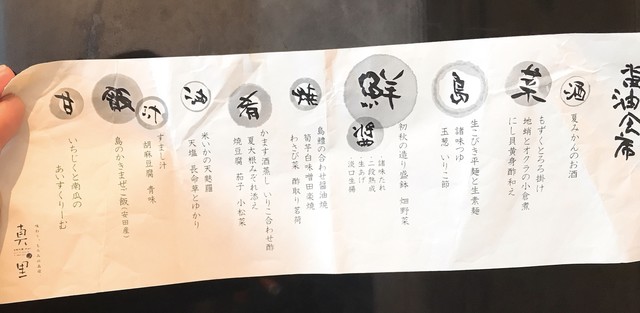 醤油会席
酒
夏みかんのお酒
菜
もずくとろろ掛け
地蛸とオクラの小倉煮
にし貝黄身酢和え
島
生こびき平麺と生素麺
諸味つゆ
玉葱 いりこ節
鮮
醤
初秋の造り盛鉢 畑野菜
・諸味たれ
・二段熟成
・生あげ
・淡口生揚
焼
島鱧の合わせ醤油焼
筍芋白味噌田楽焼
わさび菜 酢取り茗荷
肴
かます酒蒸し いりこ合わせ酢
夏大根みぞれ添え
焼豆腐 茄子 小松菜
油
米いかの天麩羅
天塩 長命草とゆかり
飯
汁
すまし汁
胡麻豆腐 青味
島のかきまぜご飯(安田産)
甘
いちじくと南瓜の
あいすくりーむ
真里